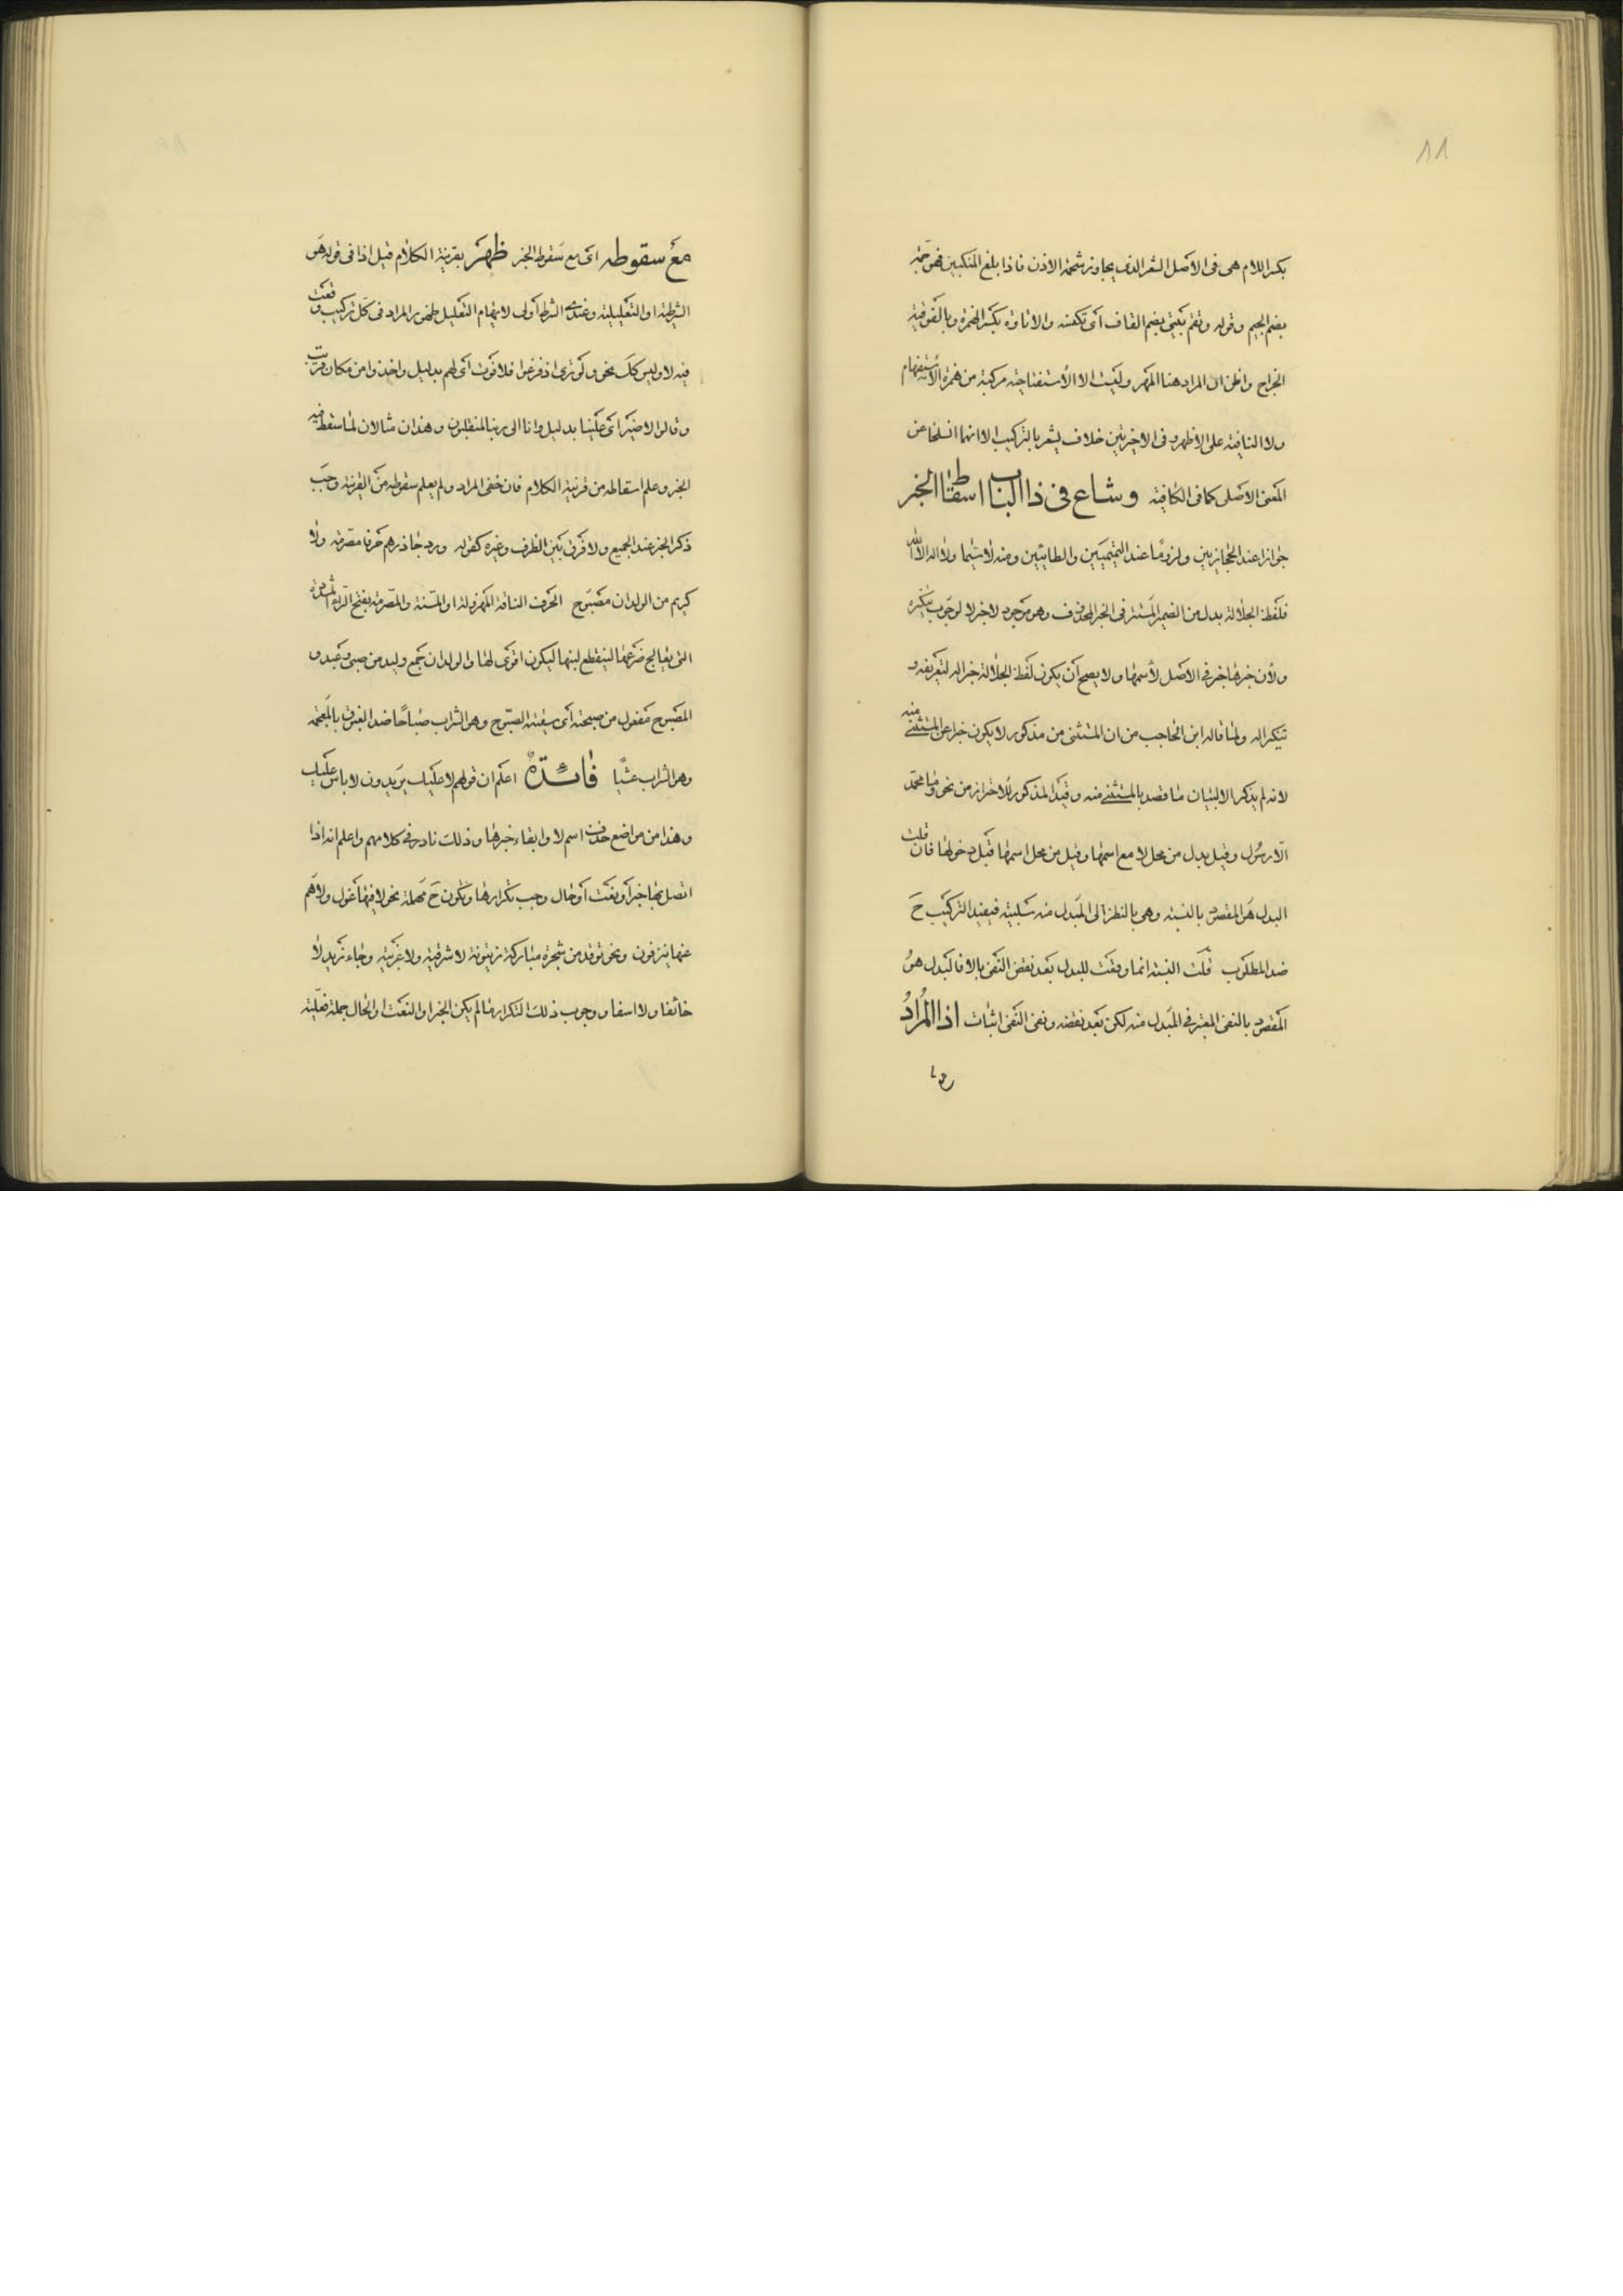 ١١
بكسر اللام هى فى الاصل الشعر الذى يجاوز شحمة الاذن فاذا بلغ المنكبين فهو جمة
بضم الجيم وقوله وتقم بضم القاف اى تكنس والاتاوة بكسر الهمزة وبالفوقية
الخراج واظن ان المراد هنا المهر وليست الا الاستفتاحية مركبة من همزة الاستفهام
ولا النافية على الاظهر وفى الاخريين خلاف يشعر بالتركيب الا انهما انسلخا عن
المعنى الاصلى كما فى الكافية وشاع فى ذا الباب اسقاط الخبر
جوازا عند الحجازيين ولزوما عند التميميين والطائيين ومنه لا سيما ولا اله الا الله
فلفظ الجلالة بدل من الضمير المستتر فى الخبر المحذوف وهو موجود لا خبر لا لوجوب تنكيره
ولأن خبرها خبر فى الاصل لأسمها ولا يصح أن يكون لفظ الجلالة خبر اله لتعريفه و
تنكير اله ولما قاله ابن الحاجب من ان المستثنى من مذكور لا يكون خبرا عن المستثنى منه
لانه لم يذكر الا لبيان ما قصد بالمستثنى منه وقيد المذكور للاحتراز من نحو وما محمد
الا رسول وقيل بدل من محل لا مع اسمها وقيل من محل اسمها قبل دخولها فان قلت
البدل هو المقصود بالنسبة وهى بالنظر الى المبدل منه سلبية فيفيد التركيب ح
ضد المطلوب قلت النسبة انما وقعت للبدل بعد نقض النفى بالا فالبدل هو
المقصود بالنفى المعتبر فى المبدل منه لكن بعد نقضه ونفى النفى اثبات اذا المراد
مع
مع سقوطه اى مع سقوط الخبر ظهر بقرينة الكلام قيل اذا فى قوله هو
الشرطية او التعليلية وعندى الشرط أولى لايهام التعليل ظهور المراد فى كل تركيب وقعت
فيه لا وليس كك نحو ولو ترى اذ فزعوا فلا فوت اى لهم بدليل واخذوا من مكان قريب
وقالوا لا ضير اى علينا بدليل وانا الى ربنا لمنقلبون وهذان مثالان لما سقط فيه
الخبر وعلم اسقاطه من قرينة الكلام فان خفى المراد ولم يعلم سقوطه من القرينة وجب
ذكر الخبر عند الجميع ولا فرق بين الظرف وغيره كقوله ورد جازرهم حرفا مصرمة ولا
كريم من الولدان مصبوح الحرف الناقة المهزولة او المسنة والمصرمة بفتح الراء المشددة
التى يعالج ضرعها لينقطع لبنها ليكون اقوى لها والولدان جمع وليد من صبى وعبد و
المصبوح مفعول من صبحته اى سقيته الصبوح وهو الشراب صباحا ضد الغبوق بالمعجمة
وهو الشراب عشيا فائدة اعلم ان قولهم لا عليك يريدون لا باس عليك
وهذا من مواضع حذف اسم لا وابقاء خبرها وذلك نادر فى كلامهم واعلم انه اذا
اتصل بها خبر أو نعت أو حال وجب تكرارها وتكون ح مهملة نحو لا فيها غول ولا هم
عنها ينزفون ونحو توقد من شجرة مباركة زيتونة لا شرقية ولا غربية وجاء زيد لا
خائفا ولا اسفا ووجوب ذلك التكرار ما لم يكن الخبر او النعت او الحال جملة فعلية